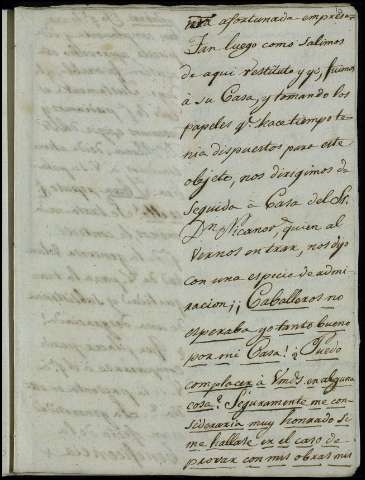 afortunada empresa,
Tan luego como salimos
de aqui Restituto y yo, fuimos
à su Casa, y tomando los
papeles q.e hace tiempo te-
nia dispuestos para este
objeto, nos dirigimos de
seguida à Casa del S.r
D.n Nicanor, quien al
vernos entrar, nos dijo
con una especie de admi-
racion; ¡Caballeros no
esperaba yo tanto bueno
por mi Casa! ¿Puedo
complacer à Vmds. en alguna
cosa? Seguramente me con-
sideraria muy honrado si
me hallase en el caso de
provar con mis obras mis